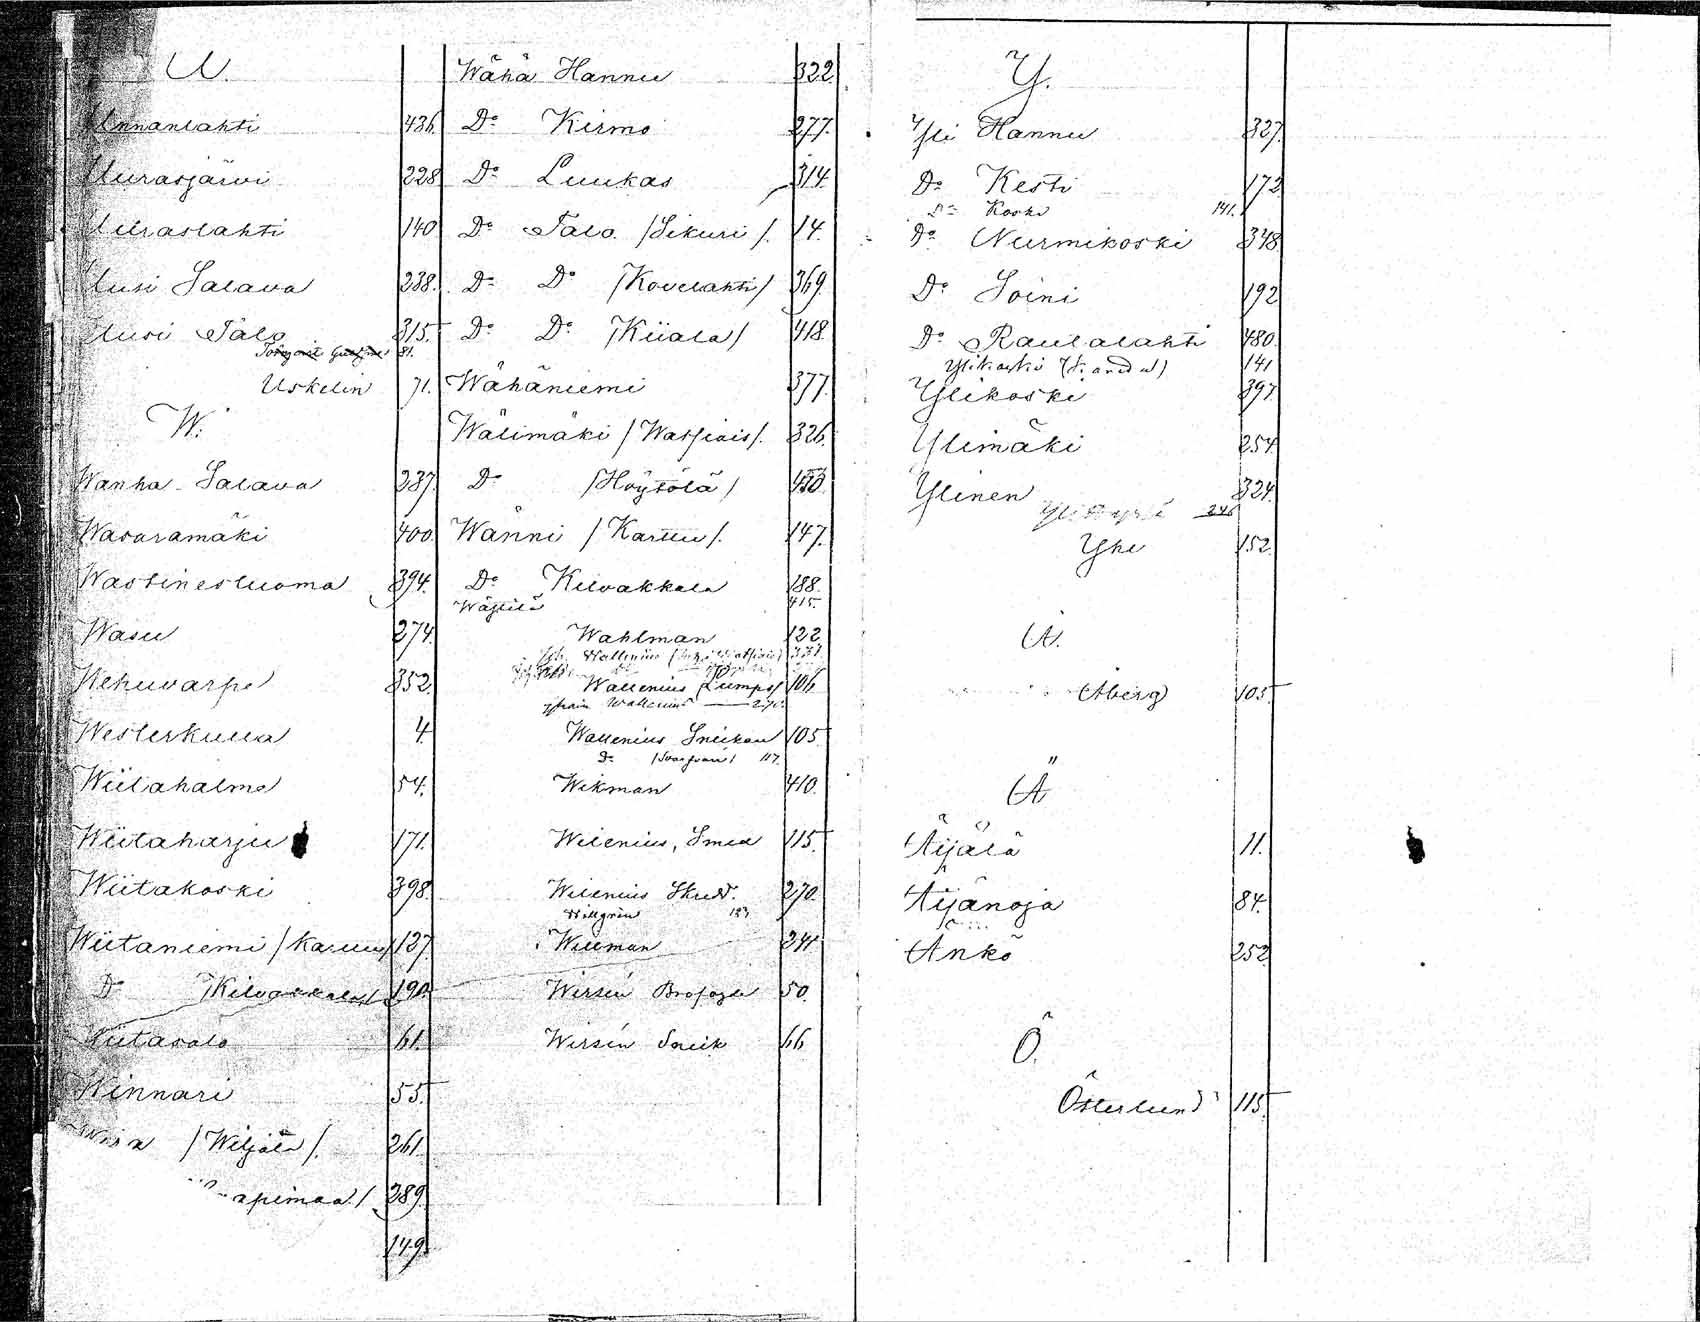 U.
Unnanlahti 436.
Uurasjärvi 228
Uuraslahti 140
Uusi Salava 238.
Uusi Talo 315.
81.
Uskelin 71.
W.
Wanha Salava 237.
Wasaramäki 400.
Wastinesluoma 394.
Wasu 274.
Wehuvarpe 352.
Westerkulla 4.
Wiitahalme 54.
Wiitaharju 171.
Wiitakoski 398.
Wiitaniemi /Karuu/ 127
Do /Kilvakkala/ 190.
Wiitasalo 61.
Winnari 55.
/Wiljala/. 261.
289.
149.
Wähä Hannu 322
Do Kirmo 277.
Do Luukas 314.
Do Talo /Sikuri/. 14.
Do Do /Kovelahti/ 369.
Do Do /Kiiala/ 418.
Wähäniemi 377.
Wälimäki /Watsiais/. 326.
Do /Höytölä/ 430
Wänni /Karuu/. 147.
Do Kilvakkala 188.
415.
Wahlman 122.
Wallenius 331.
Wallenius Lumps/ 106
Wallenius 270.
Wallenius Sneikau 105
Do 117.
Wikman 410.
Wilenius, Smed 115.
Wilenius Skrädd. 270.
Willgren 123
Willman 241
Wirsén 50.
Wirsén Sneik 66
Y.
Yli Hannu 327.
Do Kesti 172
Do Koski 141.
Do Nurmikoski 348
Do Soini 192
Do Raulalahti 480.
Ylikoski 141
Ylikoski 397.
Ylimäki 254.
Ylinen 324.
246
Yhe 152.
Å.
Åberg 105.
Ä
Äijälä 11.
Äijänoja 84.
Änkö 252
Ö.
Österlund 115.